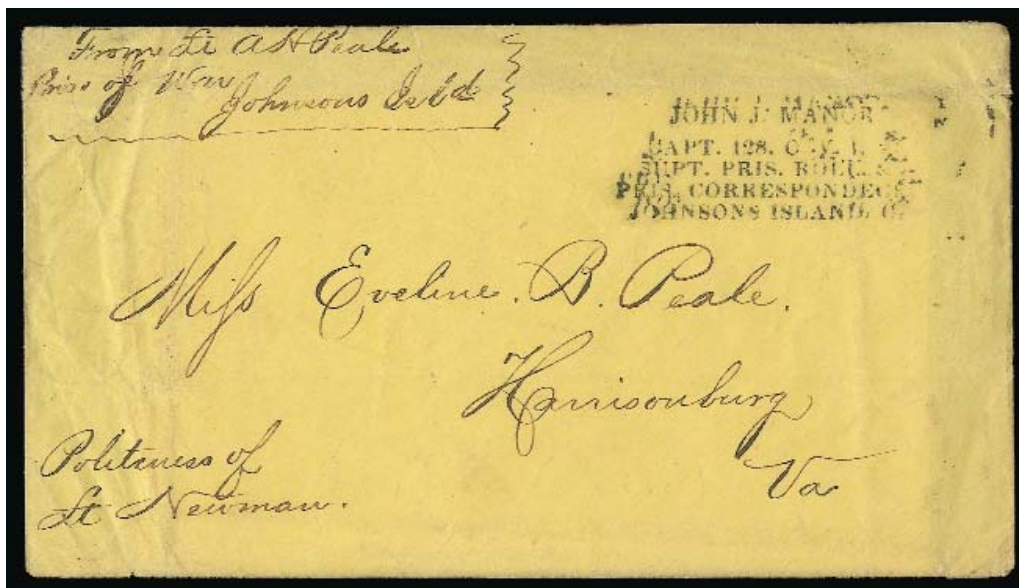 From Lt A H Peale
Pris of War
Johnsons Isl'd
JOHN J. MANOR
CAPT. 128. O. V. I.
SUPT. PRIS. ROLLS &
PRIS. CORRESPONDEC
JOHNSONS ISLAND, O.
Miss Eveline. B. Peale.
Harrisonburg
Va
Politeness of
Lt Newman.